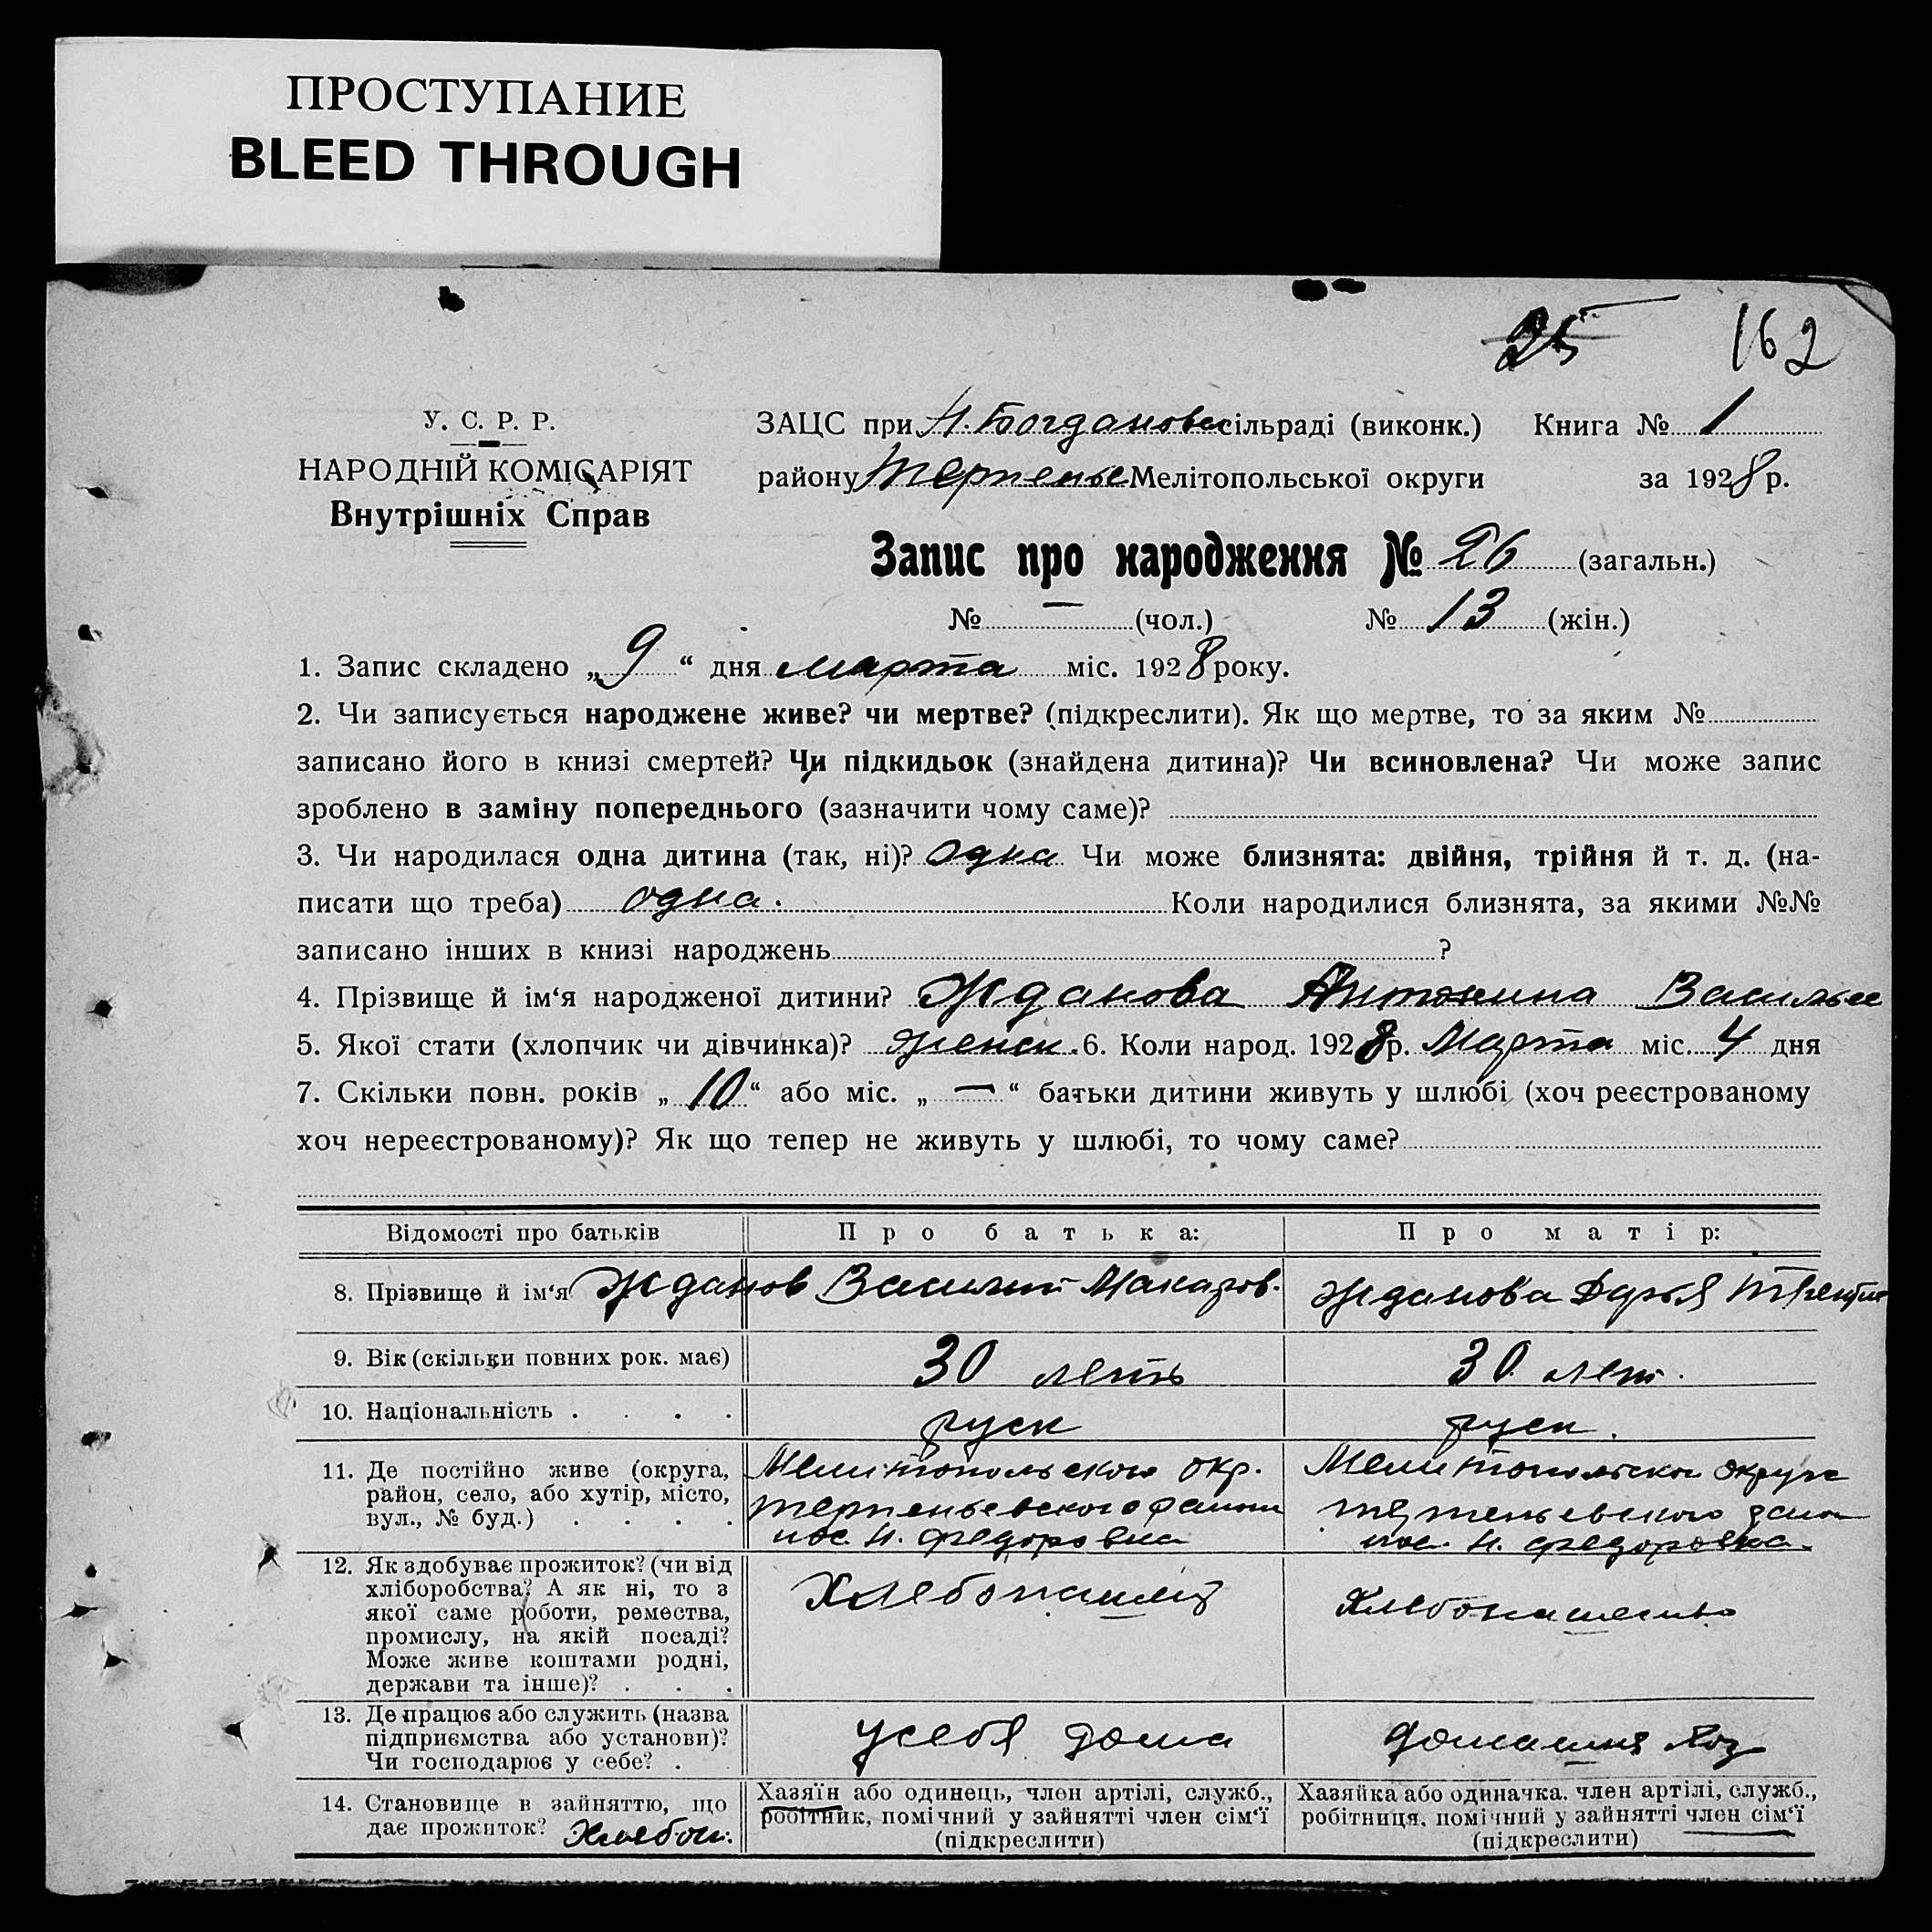 ПРОСТУПАНИЕ
BLEED THROUGH
25 162
У. С. Р. Р.
НАРОДНІЙ КОМІСАРІЯТ
Внутрішніх Справ
ЗАЦС при Н. Богдановс сільраді (виконк.) Книга № 1
району Терпенье Мелітопольської округи за 1928 р.
Запис про народження № 26 (загальн.)
№ — (чол.) № 13 (жін.)
1. Запис складено „9“ дня марта міс. 1928 року.
2. Чи записується народжене живе? чи мертве? (підкреслити). Як що мертве, то за яким №
записано його в книзі смертей? Чи підкидьок (знайдена дитина)? Чи всиновлена? Чи може запис
зроблено в заміну попереднього (зазначити чому саме)?
3. Чи народилася одна дитина (так, ні)? одна Чи може близнята: двійня, трійня й т. д. (на-
писати що треба) одна. Коли народилися близнята, за якими №№
записано інших в книзі народжень ?
4. Прізвище й ім‘я народженої дитини? Жданова Антонина Васильев
5. Якої стати (хлопчик чи дівчинка)? женск. 6. Коли народ. 1928 р. Марта міс. 4 дня
7. Скільки повн. років „10“ або міс. „—“ батьки дитини живуть у шлюбі (хоч реєстрованому
хоч нереєстрованому)? Як що тепер не живуть у шлюбі, то чому саме?
Відомості про батьків Про батька: Про матір:
8. Прізвище й ім‘я Жданов Василий Макаров. Жданова Дарья
9. Вік (скільки повних рок. має) 30 леть 30 лет.
10. Національність . . . . руск руск.
11. Де постійно живе (округа,
район, село, або хутір, місто,
вул., № буд.) . . . .
Мелитопольского окр.
Терпеньевского район
пос. Н. Федоровка
Мелитопольско округа
Терпеньевского район
пос. Н. Федоровка.
12. Як здобуває прожиток? (чи від
хліборобства? А як ні, то з
якої саме роботи, ремества,
промислу, на якій посаді?
Може живе коштами родні,
держави та інше)? . . .
Хлебопашец
Хлебопашество
13. Де працює або служить (назва
підприємства або установи)?
Чи господарює у себе? .
у себя дома
домашня хоз
14. Становище в зайняттю, що
дає прожиток? Хлебоп.
Хазяїн або одинець, член артілі, служб.,
робітник, помічний у зайнятті член сім‘ї
(підкреслити)
Хазяйка або одиначка. член артілі, служб.,
робітниця, помічний у зайнятті член сім‘ї
(підкреслити)